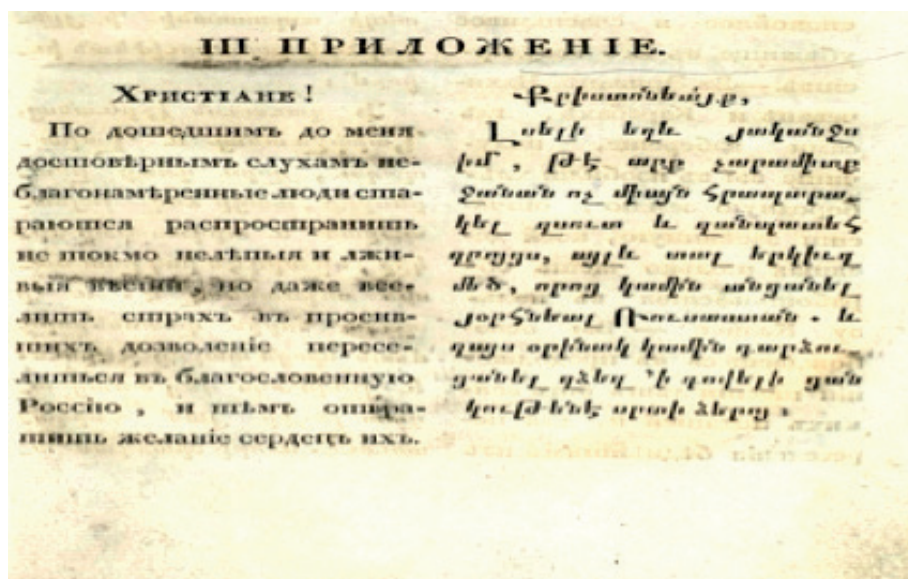 III ПРИЛОЖЕНІЕ.
Христіане!
По дошедшимъ до меня
достовѣрнымъ слухамъ не-
благонамѣренные люди ста-
раются распространить
не токмо нелѣпыя и лжи-
выя вѣсти, но даже все-
лить страхъ въ просив-
шихъ дозволеніе пересе-
литься въ благословенную
Россію, и тѣмъ отвра-
тить желаніе сердецъ ихъ.
Քրիստոնեայք,
Լսելի եղև յականջս
իմ, թէ արք չարամիտք
ջանան ոչ միայն հրապարա-
կել զսուտ և զանպատեհ
զրոյցս, այլև տալ երկիւղ
մեծ, որոց կամին անցանել
յօրհնեալ Ռուսաստան. և
զայս օրինակ կամին դարձու-
ցանել զձեզ ՚ի գովելի ցան
կութենէ սրտի ձերոյ։